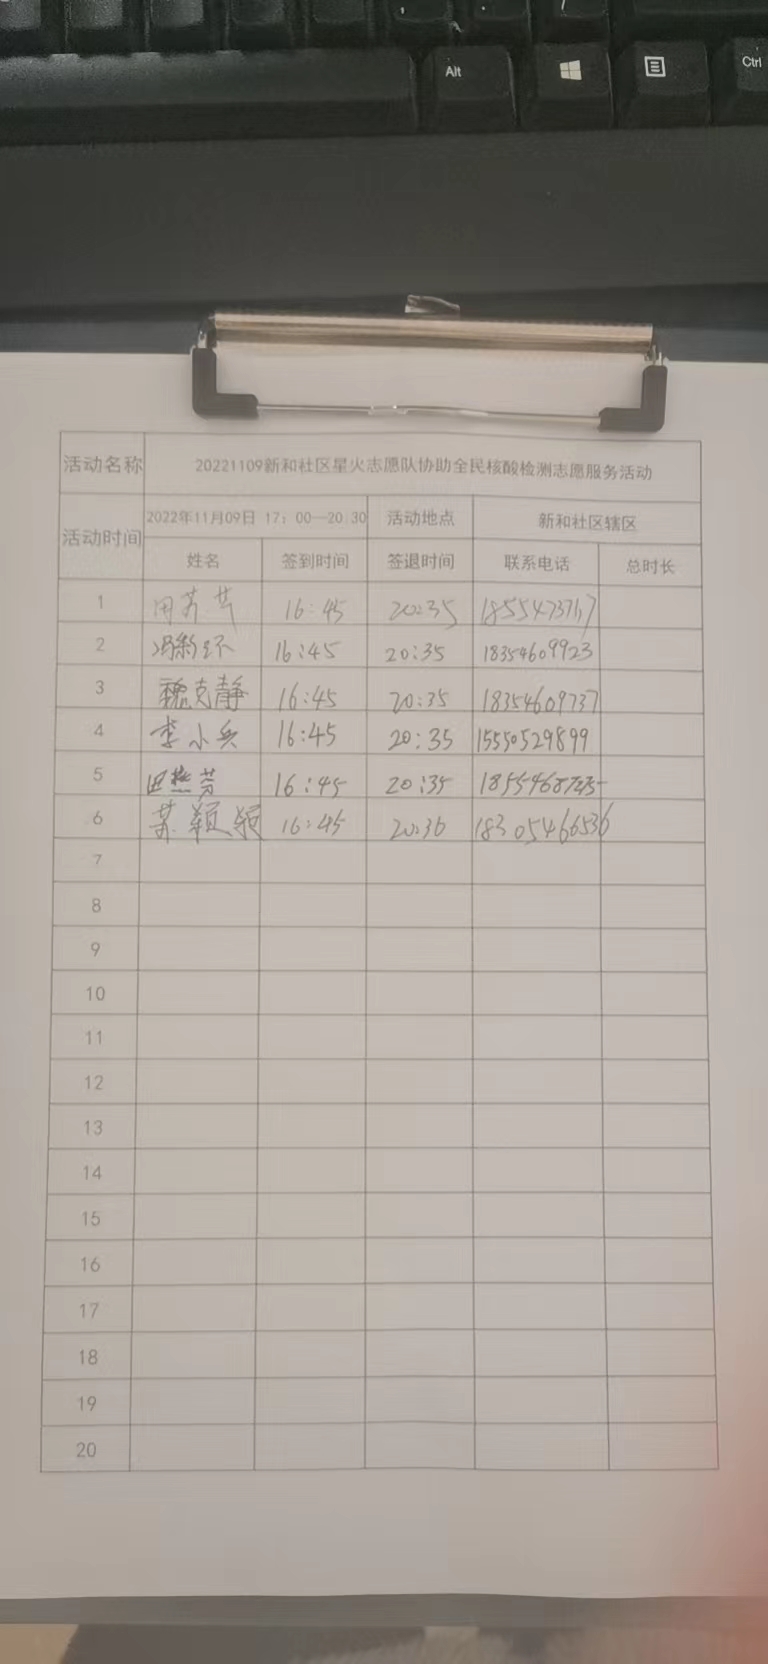 Alt
Ctrl
活动名称 20221109新和社区星火志愿队协助全民核酸检测志愿服务活动
活动时间 2022年11月09日 17：00—20:30 活动地点 新和社区辖区
姓名 签到时间 签退时间 联系电话 总时长
1 16:45 20:35
2 16:45 20:35 18354609923
3 魏克静 16:45 20:35 18354609737
4 李小兵 16:45 20:35 15550529899
5 田燕芳 16:45 20:35
6 苏颖颖 16:45 20:36 18305466536
7
8
9
10
11
12
13
14
15
16
17
18
19
20